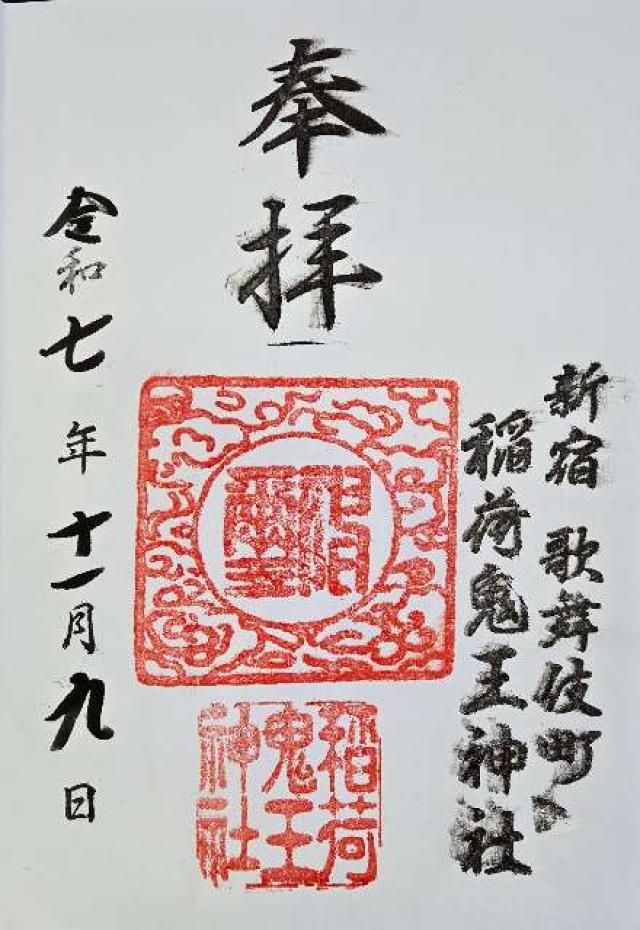 新宿 歌舞伎町
稲荷鬼王神社
奉拝
稲荷
鬼王
神社
令和七年十一月九日